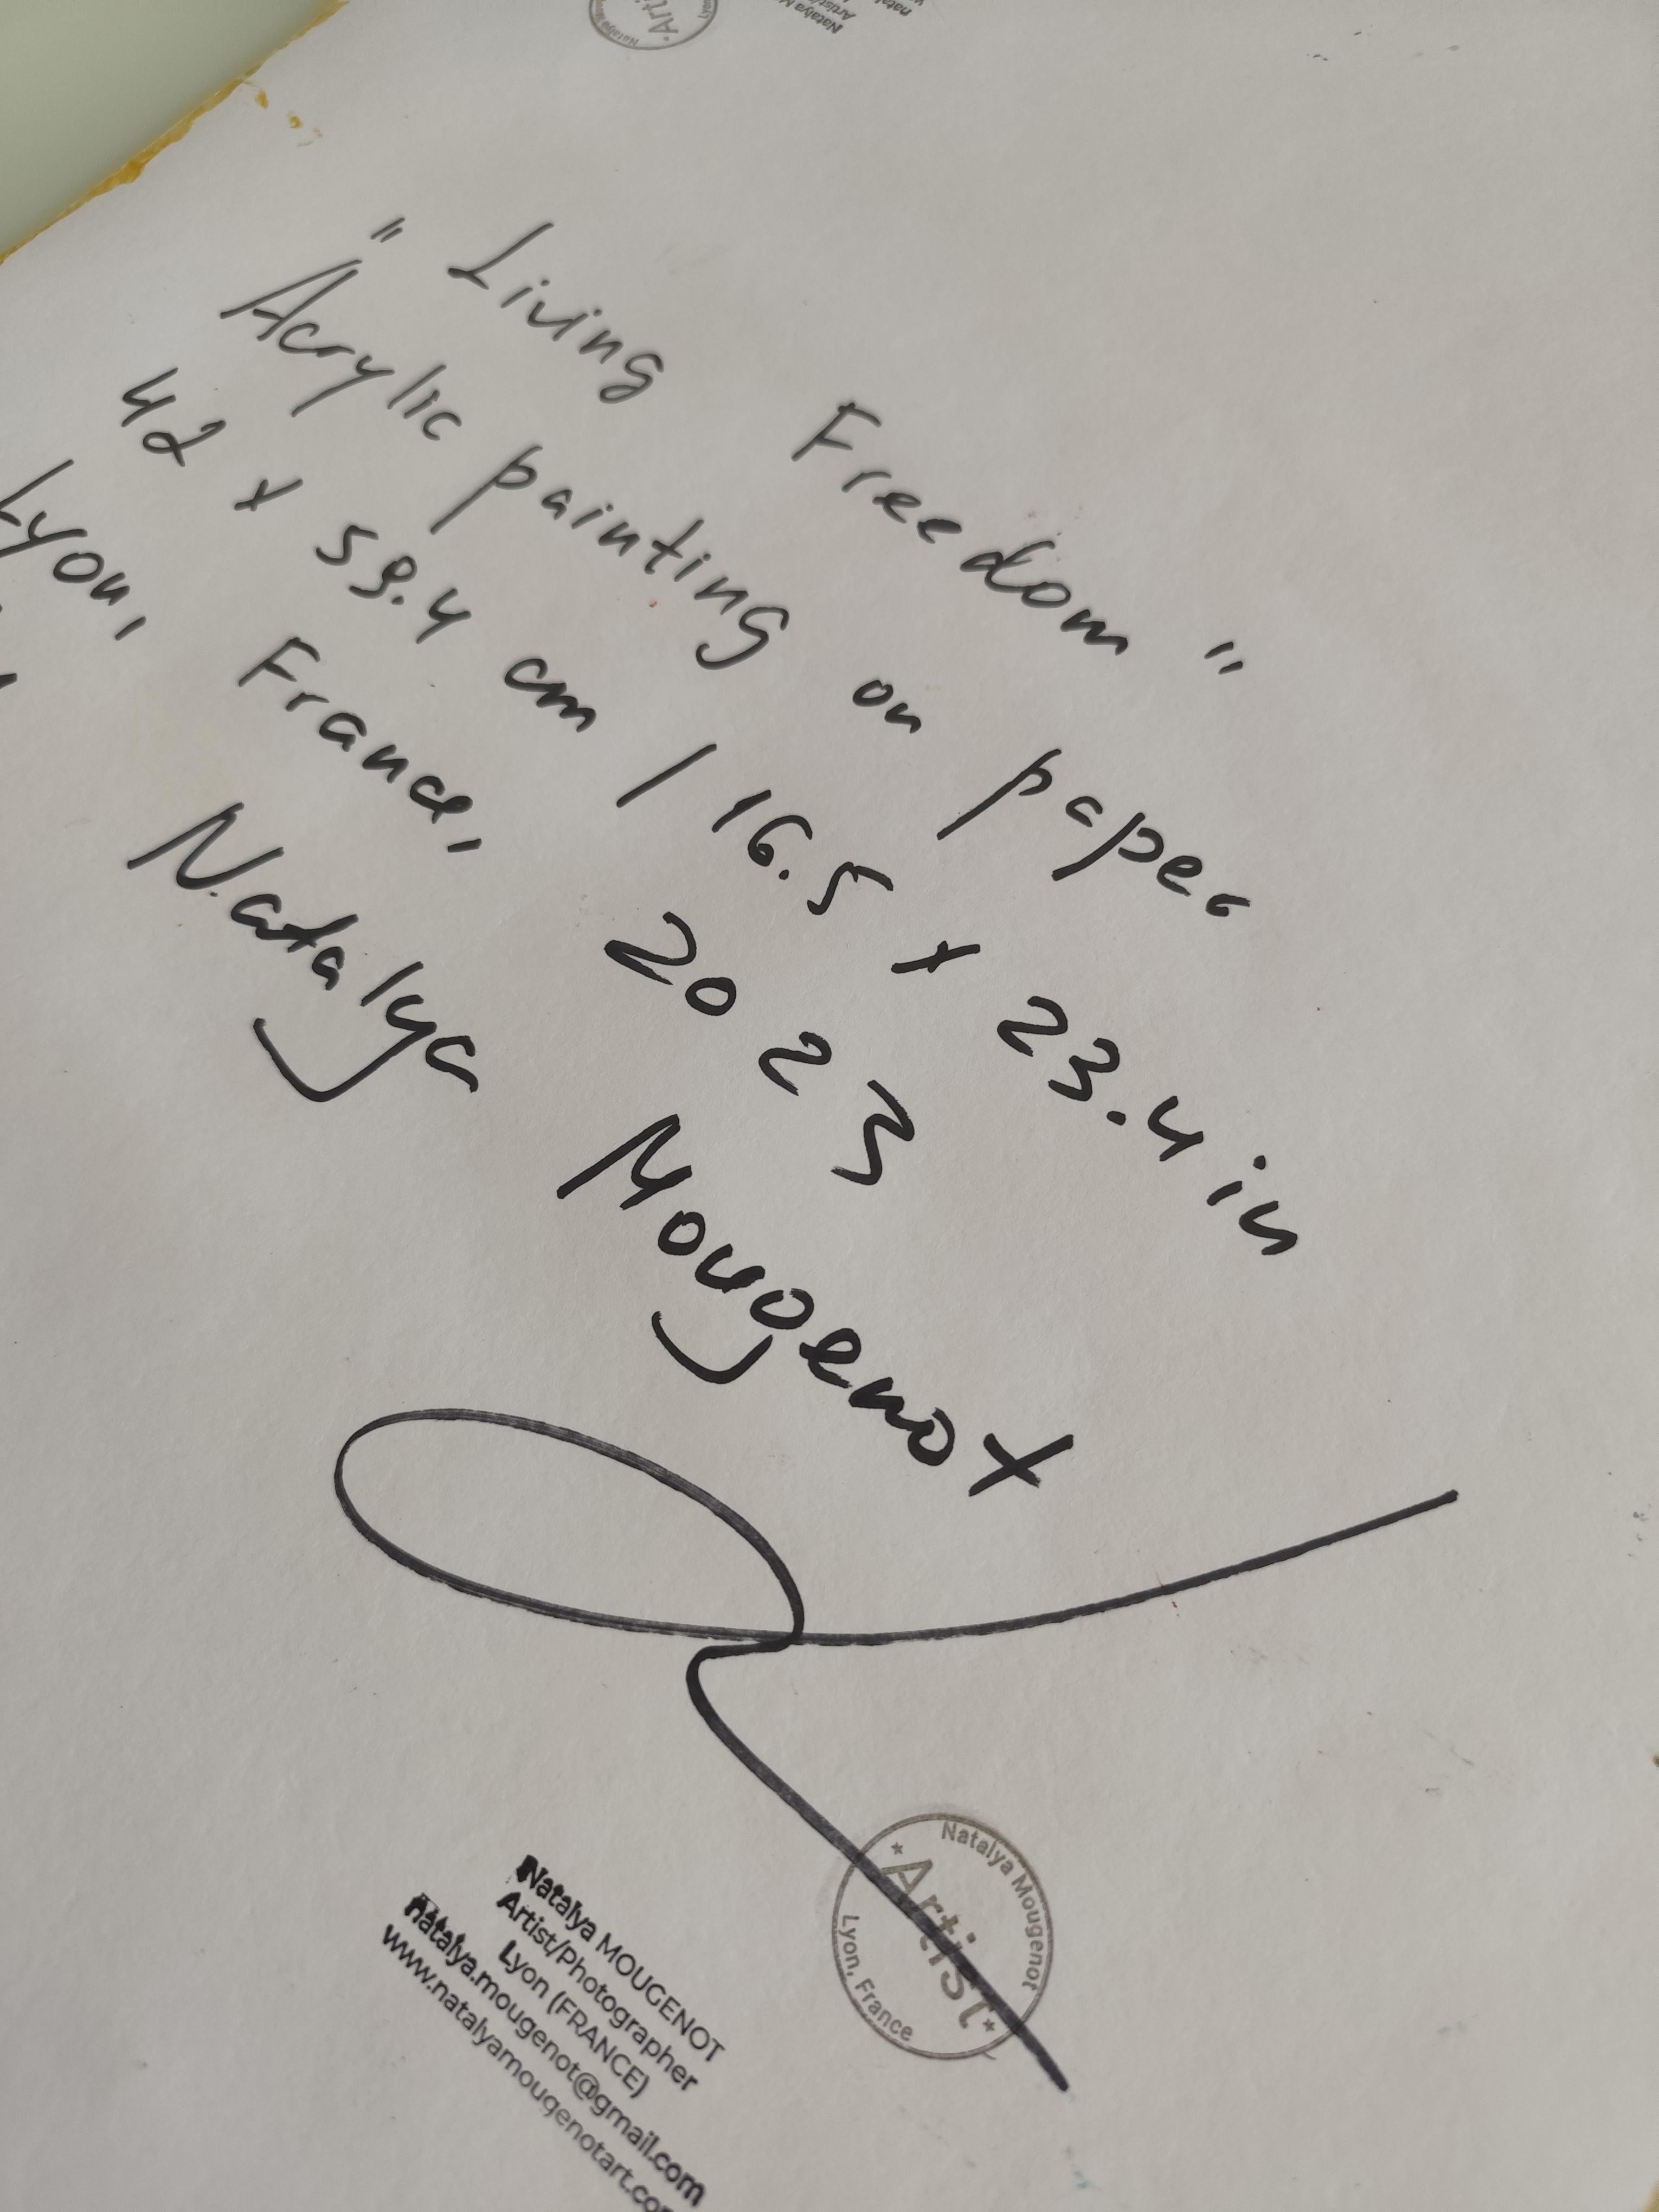 "Living Freedom"
Acrylic painting on paper
42 x 59.4 cm / 16.5 x 23.4 in
Lyon, France, 2023
Natalya Mougenot
Natalya Mougenot
*Artist*
Lyon, France
Natalya MOUGENOT
Artist/Photographer
Lyon (FRANCE)
natalya.mougenot@gmail.com
www.natalyamougenotart.com